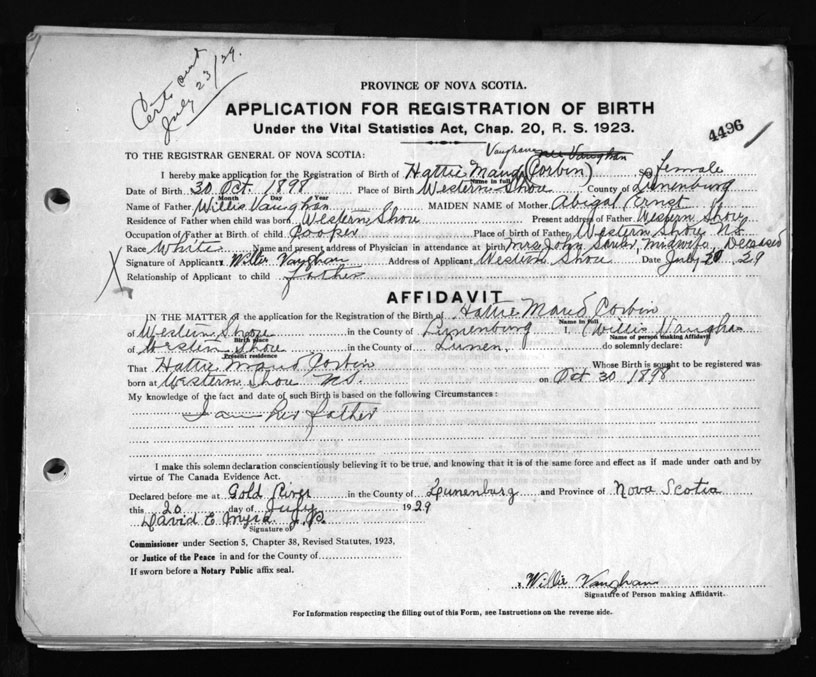 Certs sent
July 23/29.
PROVINCE OF NOVA SCOTIA.
APPLICATION FOR REGISTRATION OF BIRTH
Under the Vital Statistics Act, Chap. 20, R. S. 1923.
4496
Vaughan
TO THE REGISTRAR GENERAL OF NOVA SCOTIA: nee Vaughan
I hereby make application for the Registration of Birth of Hattie Maud (Corbin) Female
Name in full
Date of Birth 30 Oct. 1898 Place of Birth Western Shore County of Lunenburg
Month Day Year
Name of Father Willis Vaughan MAIDEN NAME of Mother Abigal Ernst
Residence of Father when child was born Western Shore Present address of Father Western Shore
Occupation of Father at Birth of child Cooper Place of birth of Father Western Shore N.S.
Race White Name and present address of Physician in attendance at birth Mrs John midwife, Deceased
X Signature of Applicant x Vaughan Address of Applicant Western Shore Date July 20 29
Relationship of Applicant to child father
AFFIDAVIT
IN THE MATTER of the application for the Registration of the Birth of Hattie Maud Corbin
Name in full
of Western Shore in the County of Lunenburg I, Willis Vaughan
Birth place Name of person making Affidavit
of Western Shore in the County of Lunen. do solemnly declare:
Present residence
That Hattie Maud Corbin Whose Birth is sought to be registered was
born at Western Shore N.S. on Oct 30 1898
My knowledge of the fact and date of such Birth is based on the following Circumstances:
I am her father
I make this solemn declaration conscientiously believing it to be true, and knowing that it is of the same force and effect as if made under oath and by
virtue of The Canada Evidence Act.
Declared before me at Gold River in the County of Lunenburg and Province of Nova Scotia
this 20 day of July 1929
David E Myra J.P.
Signature of
Commissioner under Section 5, Chapter 38, Revised Statutes, 1923,
or Justice of the Peace in and for the County of
If sworn before a Notary Public affix seal.
Willis Vaughan
Signature of Person making Affidavit.
For Information respecting the filling out of this Form, see Instructions on the reverse side.